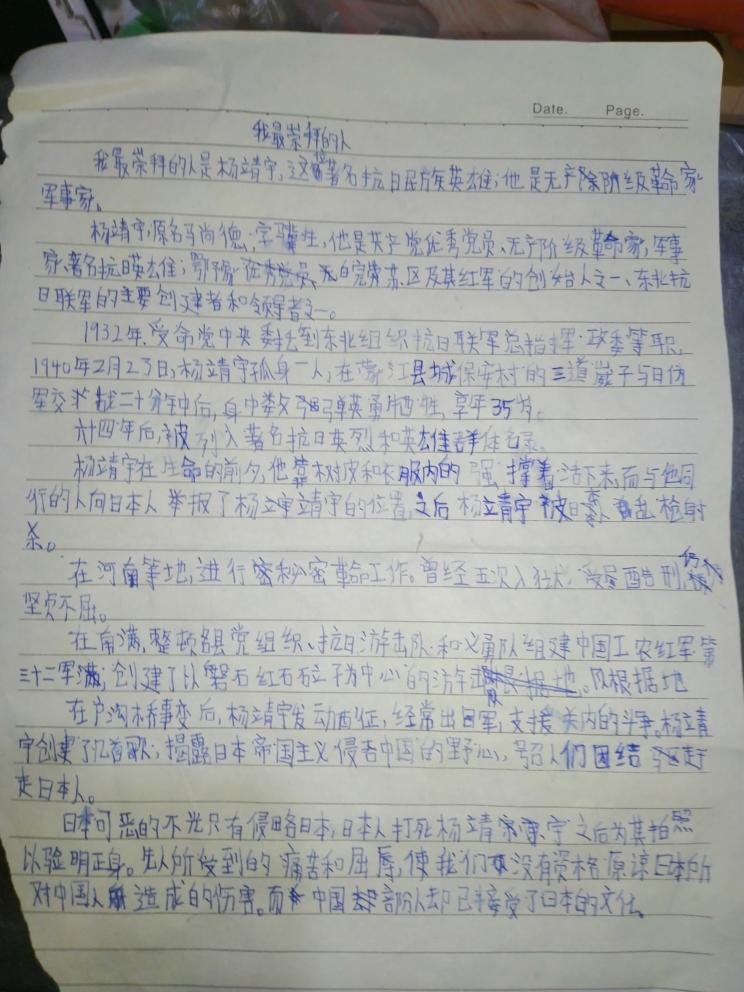 Date. Page.
我最崇拜的人
我最崇拜的人是杨靖宇,这位著名抗日民族英雄;他是无产阶级革命家
军事家。
杨靖宇原名马尚德,字骥生,他是共产党优秀党员、无产阶级革命家,军事
家、著名抗日英雄;鄂豫 苏区及其红军的创始人之一、东北抗
日联军的主要创建者和领导者之一。
1932年,受命党中央委托到东北组织抗日联军总指挥·政委等职,
1940年2月23日,杨靖宇孤身一人,在蒙江县城保安村的三道崴子与日伪
军交战二十分钟后,身中数弹英勇牺牲,享年35岁。
六十四年后,被列入著名抗日英烈和英雄群体名录。
杨靖宇在生命的前夕,他靠树皮和衣服内的 强撑着活下来,而与他同
行的人向日本人举报了杨靖宇的位置,之后杨靖宇被日本人乱枪射
杀。
在河南等地,进行秘密革命工作。曾经五次入狱,受尽酷刑,仍
坚贞不屈。
在南满,整顿各县党组织、抗日游击队·和义勇队组建中国工农红军第
三十二军满;创建了以磐石红石砬子为中心的游击 根据地
在卢沟桥事变后,杨靖宇发动西征,经常出 军,支援关内的斗争。杨靖
宇创建了亿首歌;揭露日本帝国主义侵吞中国的野心,号召人们团结 赶
走日本人。
日本可恶的不光只有侵略日本,日本人打死杨靖宇之后为其拍照
以验明正身。先人所受到的痛苦和屈辱,使我们没有资格原谅日本所
对中国人造成的伤害。而中国部份人却已接受了日本的文化。